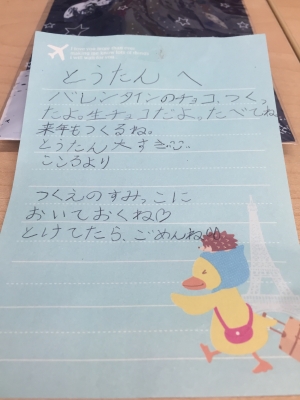 とうたん へ
バレンタインのチョコ、つくっ
たよ。生チョコだよ。たべてね
来年もつくるね。
とうたん大すき
こころより
つくえのすみっこに
おいておくね♡
とけてたら、ごめんね